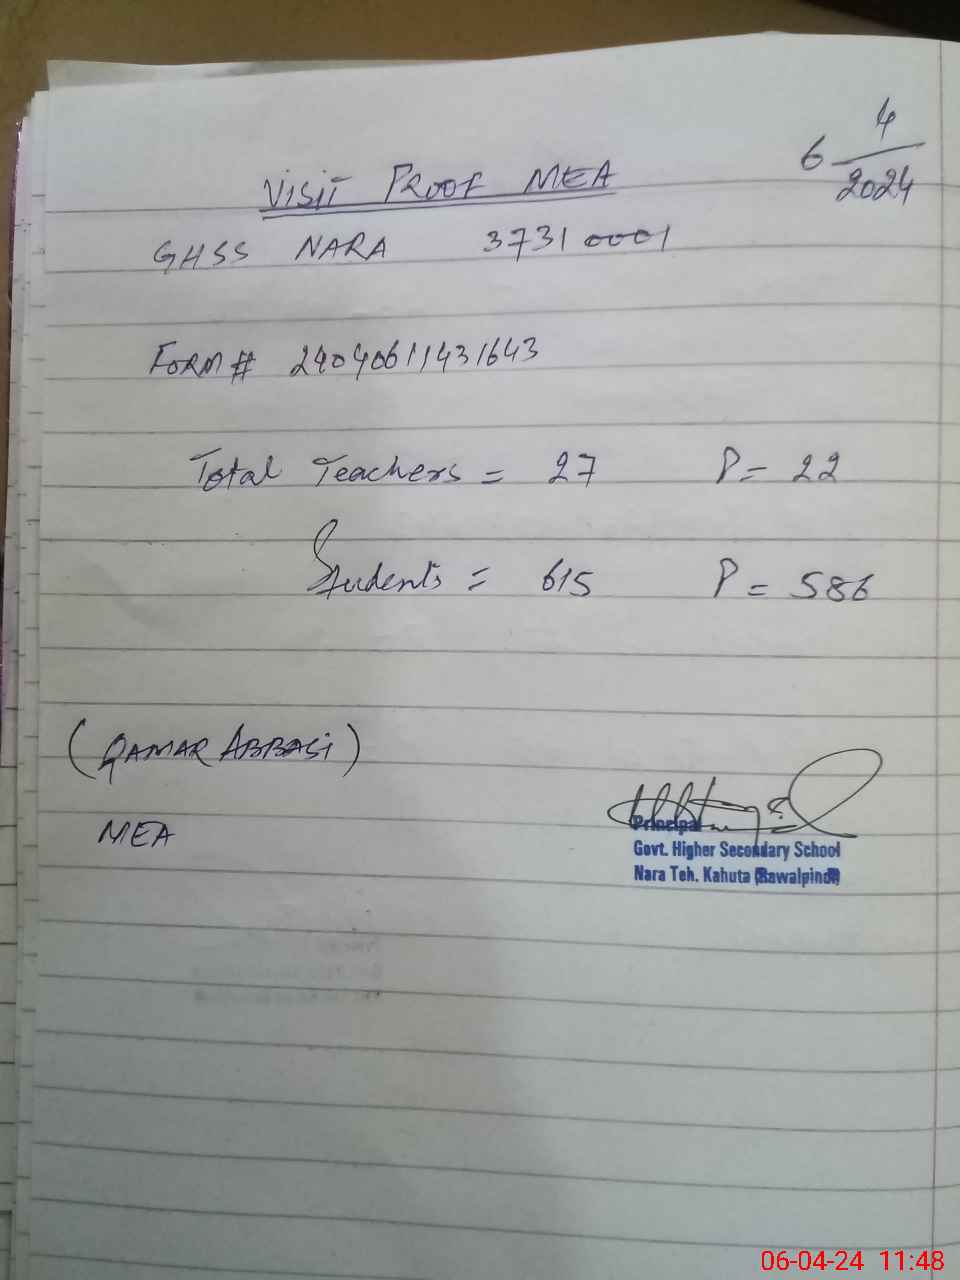 6 4/2024
VISIT PROOF MEA
GHSS NARA 37310001
FORM # 24040611431643
Total Teachers = 27 P = 22
Students = 615 P = 586
(QAMAR ABBASI)
MEA
Principal
Govt. Higher Secondary School
Nara Teh. Kahuta (Rawalpindi)
06-04-24 11:48